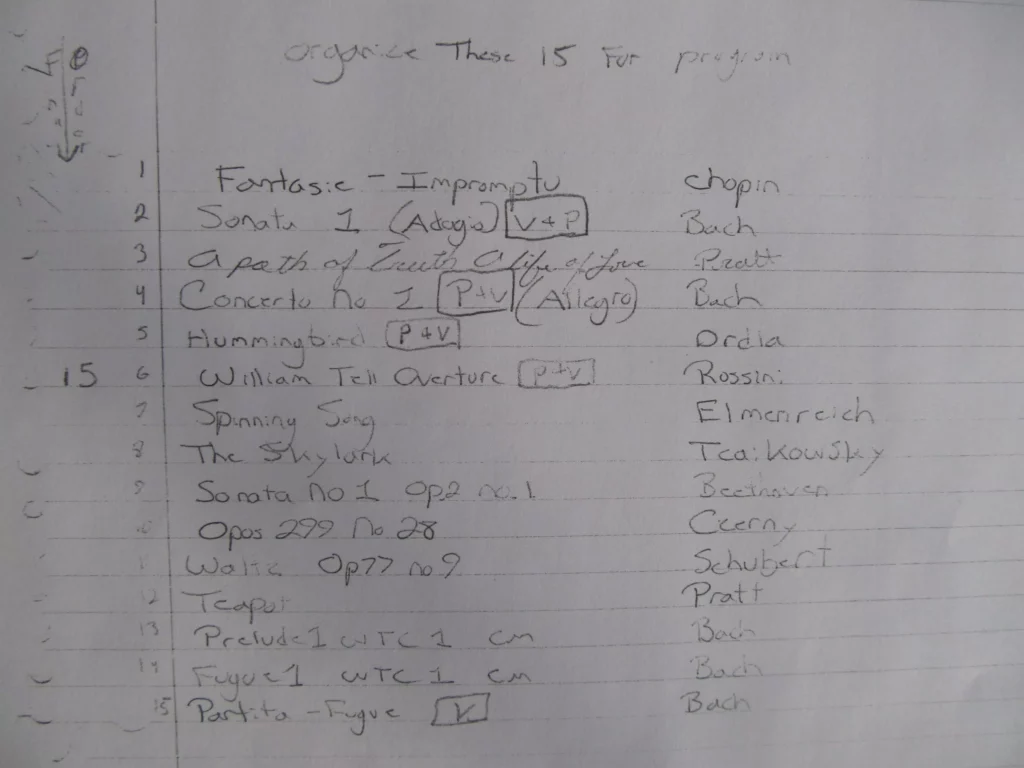 Organize These 15 For program
1 Fantasie - Impromptu Chopin
2 Sonata 1 (Adagio) V+P Bach
3 A path of Truth A life of Love Pratt
4 Concerto No 1 P+V (Allegro) Bach
5 Hummingbird P+V Ordia
15 6 William Tell Overture P+V Rossini
7 Spinning Song Elmenreich
8 The Skylark Tcaikowsky
9 Sonata No 1 Op2 no.1 Beethoven
10 Opos 299 No 28 Czerny
11 Waltz Op77 no 9 Schubert
12 Teapot Pratt
13 Prelude 1 WTC 1 Cm Bach
14 Fugue 1 WTC 1 Cm Bach
15 Partita - Fugue V Bach